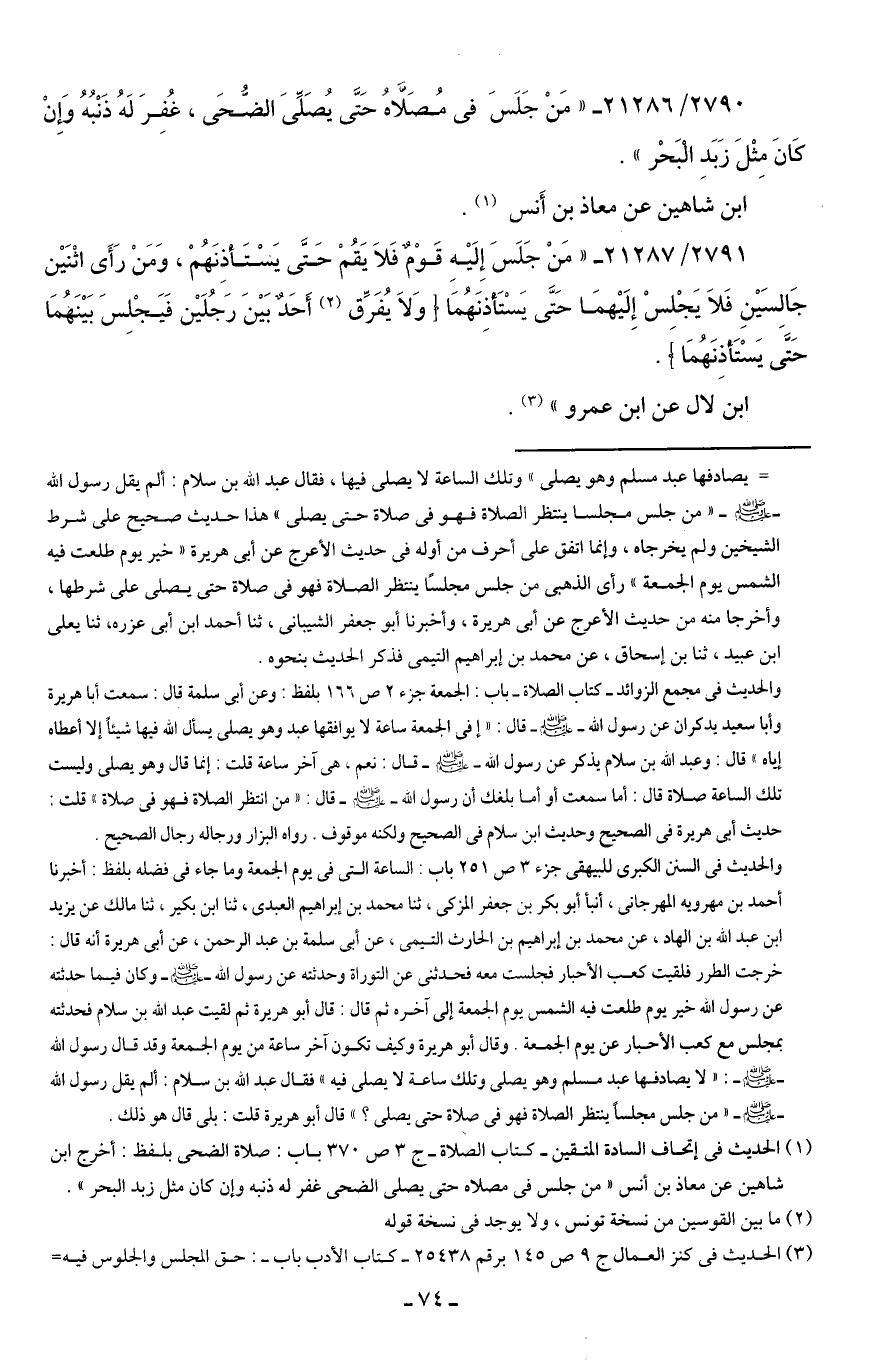 ٢١٢٨٦/٢٧٩٠ـ « مَنْ جَلَسَ فى مُصَلَّاهُ حَتَّى يُصَلِّىَ الضُّحَى ، غُفِرَ لَهُ ذَنْبُهُ وَإِنْ
كَانَ مِثْلَ زَبَدِ الْبَحْرِ » .
ابن شاهين عن معاذ بن أَنس (١) .
٢١٢٨٧/٢٧٩١ـ « مَنْ جَلَسَ إِلَيْهِ قَوْمٌ فَلاَ يَقُمْ حَتَّى يَسْتَأذنَهُمْ ، وَمَنْ رَأَى اثْنَيْن
جَالِسَيْنِ فَلاَ يَجْلِسْ إِلَيْهِمَا حَتَّى يَسْتَأْذِنَهُمَا { وَلاَ يُفَرِّق (٢) أَحَدٌ بَيْنَ رَجُلَيْنِ فَيَجْلِسَ بَيْنَهُمَا
حَتَّى يَسْتَأْذِنَهُمَا } .
ابن لال عن ابن عمرو » (٣) .
= يصادفها عبد مسلم وهو يصلى » وتلك الساعة لا يصلى فيها ، فقال عبد الله بن سلام : ألم يقل رسول الله
ـ ﷺ ـ « من جلس مجلسا ينتظر الصلاة فهو فى صلاة حتى يصلى » هذا حديث صحيح على شرط
الشيخين ولم يخرجاه ، وإنما اتفق على أحرف من أوله فى حديث الأعرج عن أبى هريرة « خير يوم طلعت فيه
الشمس يوم الجمعة » رأى الذهبى من جلس مجلسًا ينتظر الصلاة فهو فى صلاة حتى يصلى على شرطها ،
وأخرجا منه من حديث الأعرج عن أبى هريرة ، وأخبرنا أبو جعفر الشيبانى ، ثنا أحمد ابن أبى عزره، ثنا يعلى
ابن عبيد ، ثنا بن إسحاق ، عن محمد بن إبراهيم التيمى فذكر الحديث بنحوه .
والحديث فى مجمع الزوائد ـ كتاب الصلاة ـ باب : الجمعة جزء ٢ ص ١٦٦ بلفظ : وعن أبى سلمة قال : سمعت أبا هريرة
وأبا سعيد يذكران عن رسول الله ـ ﷺ ـ قال : « إ فى الجمعة ساعة لا يوافقها عبد وهو يصلى يسأل الله فيها شيئاً إلا أعطاه
إياه » قال : وعبد الله بن سلام يذكر عن رسول الله ـ ﷺ ـ قال : نعم ، هى آخر ساعة قلت : إنما قال وهو يصلى وليست
تلك الساعة صلاة قال : أما سمعت أو أما بلغك أن رسول الله ـ ﷺ ـ قال : « من انتظر الصلاة فهو فى صلاة » قلت :
حديث أبى هريرة فى الصحيح وحديث ابن سلام فى الصحيح ولكنه موقوف . رواه البزار ورجاله رجال الصحيح .
والحديث فى السنن الكبرى للبيهقى جزء ٣ ص ٢٥١ باب : الساعة التى فى يوم الجمعة وما جاء فى فضله بلفظ : أخبرنا
أحمد بن مهرويه المهرجانى ، أنبأ أبو بكر بن جعفر المزكى ، ثنا محمد بن إبراهيم العبدى ، ثنا ابن بكير ، ثنا مالك عن يزيد
ابن عبد الله بن الهاد ، عن محمد بن إبراهيم بن الحارث التيمى ، عن أبى سلمة بن عبد الرحمن ، عن أبى هريرة أنه قال :
خرجت الطرر فلقيت كعب الأحبار فجلست معه فحدثنى عن التوراة وحدثته عن رسول الله ـ ﷺ ـ وكان فيما حدثته
عن رسول الله خير يوم طلعت فيه الشمس يوم الجمعة إلى آخره ثم قال : قال أبو هريرة ثم لقيت عبد الله بن سلام فحدثته
بمجلس مع كعب الأحبار عن يوم الجمعة . وقال أبو هريرة وكيف تكون آخر ساعة من يوم الجمعة وقد قال رسول الله
ـ ﷺ ـ : « لا يصادفها عبد مسلم وهو يصلى وتلك ساعة لا يصلى فيه » فقال عبد الله بن سلام : ألم يقل رسول الله
ـ ﷺ ـ « من جلس مجلساً ينتظر الصلاة فهو فى صلاة حتى يصلى ؟ » قال أبو هريرة قلت : بلى قال هو ذلك .
(١) الحديث فى إتحاف السادة المتقين ـ كتاب الصلاة ـ ج ٣ ص ٣٧٠ باب : صلاة الضحى بلفظ : أخرج ابن
شاهين عن معاذ بن أنس « من جلس فى مصلاه حتى يصلى الضحى غفر له ذنبه وإن كان مثل زبد البحر » .
(٢) ما بين القوسين من نسخة تونس ، ولا يوجد فى نسخة قوله
(٣) الحديث فى كنز العمال ج ٩ ص ١٤٥ برقم ٢٥٤٣٨ ـ كتاب الأدب باب ـ : حق المجلس والجلوس فيه=
ـ ٧٤ ـ